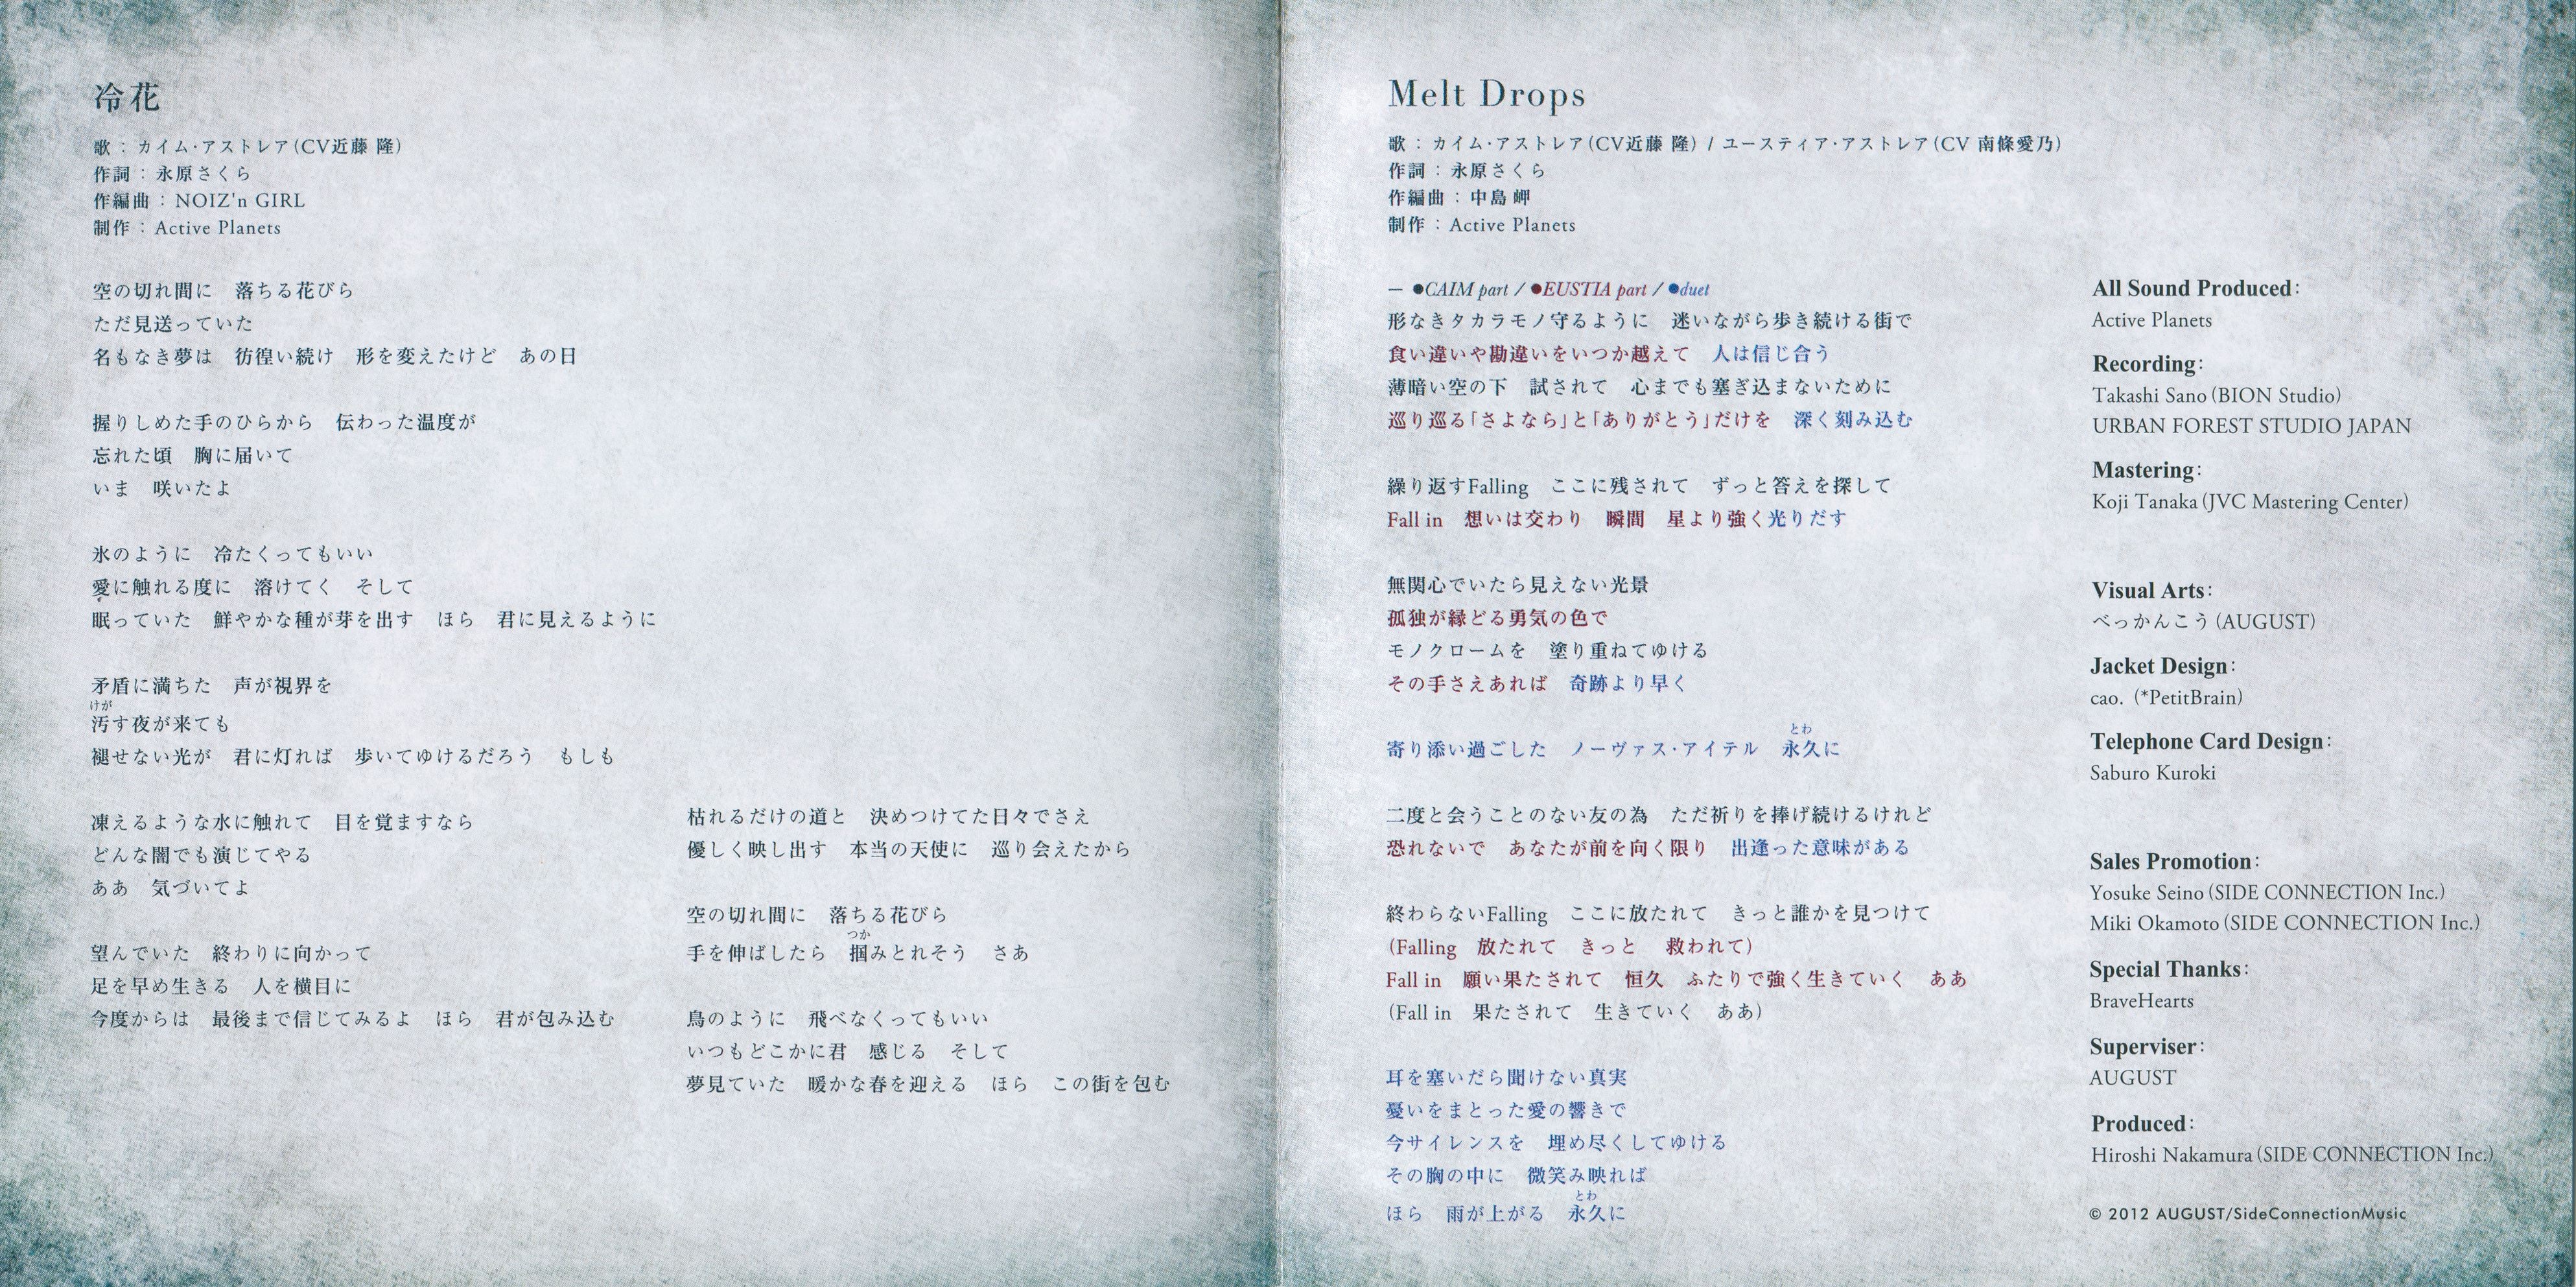 冷花
歌：カイム・アストレア(CV近藤 隆)
作詞：永原さくら
作編曲：NOIZ'n GIRL
制作：Active Planets
空の切れ間に　落ちる花びら
ただ見送っていた
名もなき夢は　彷徨い続け　形を変えたけど　あの日
握りしめた手のひらから　伝わった温度が
忘れた頃　胸に届いて
いま　咲いたよ
氷のように　冷たくってもいい
愛に触れる度に　溶けてく　そして
眠っていた　鮮やかな種が芽を出す　ほら　君に見えるように
矛盾に満ちた　声が視界を
けが
汚す夜が来ても
褪せない光が　君に灯れば　歩いてゆけるだろう　もしも
凍えるような水に触れて　目を覚ますなら
どんな闇でも演じてやる
ああ　気づいてよ
望んでいた　終わりに向かって
足を早め生きる　人を横目に
今度からは　最後まで信じてみるよ　ほら　君が包み込む
枯れるだけの道と　決めつけてた日々でさえ
優しく映し出す　本当の天使に　巡り会えたから
空の切れ間に　落ちる花びら
つか
手を伸ばしたら　掴みとれそう　さあ
鳥のように　飛べなくってもいい
いつもどこかに君　感じる　そして
夢見ていた　暖かな春を迎える　ほら　この街を包む
Melt Drops
歌：カイム・アストレア(CV近藤 隆) / ユースティア・アストレア(CV 南條愛乃)
作詞：永原さくら
作編曲：中島 岬
制作：Active Planets
— ●CAIM part / ●EUSTIA part / ●duet
形なきタカラモノ守るように　迷いながら歩き続ける街で
食い違いや勘違いをいつか越えて　人は信じ合う
薄暗い空の下　試されて　心までも塞ぎ込まないために
巡り巡る「さよなら」と「ありがとう」だけを　深く刻み込む
繰り返すFalling　ここに残されて　ずっと答えを探して
Fall in　想いは交わり　瞬間　星より強く光りだす
無関心でいたら見えない光景
孤独が縁どる勇気の色で
モノクロームを　塗り重ねてゆける
その手さえあれば　奇跡より早く
とわ
寄り添い過ごした　ノーヴァス・アイテル　永久に
二度と会うことのない友の為　ただ祈りを捧げ続けるけれど
恐れないで　あなたが前を向く限り　出逢った意味がある
終わらないFalling　ここに放たれて　きっと誰かを見つけて
(Falling　放たれて　きっと　救われて)
Fall in　願い果たされて　恒久　ふたりで強く生きていく　ああ
(Fall in　果たされて　生きていく　ああ)
耳を塞いだら聞けない真実
憂いをまとった愛の響きで
今サイレンスを　埋め尽くしてゆける
その胸の中に　微笑み映れば
とわ
ほら　雨が上がる　永久に
All Sound Produced:
Active Planets
Recording:
Takashi Sano (BION Studio)
URBAN FOREST STUDIO JAPAN
Mastering:
Koji Tanaka (JVC Mastering Center)
Visual Arts:
べっかんこう (AUGUST)
Jacket Design:
cao. (*PetitBrain)
Telephone Card Design:
Saburo Kuroki
Sales Promotion:
Yosuke Seino (SIDE CONNECTION Inc.)
Miki Okamoto (SIDE CONNECTION Inc.)
Special Thanks:
BraveHearts
Superviser:
AUGUST
Produced:
Hiroshi Nakamura (SIDE CONNECTION Inc.)
© 2012 AUGUST/SideConnectionMusic